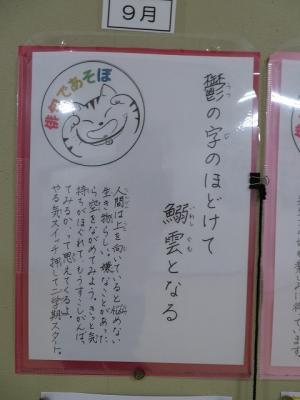 9月
俳句であそぼ
鬱の字のほどけて
鰯雲となる
人間は上を向いていると悩めない
生き物らしい。嫌なことがあった
ら空をながめてみよう。きっと気
持ちがほぐれて、もうすこしがんば
ってみるかって思えてくるよ。
やる気スイッチ押して二学期スタート。